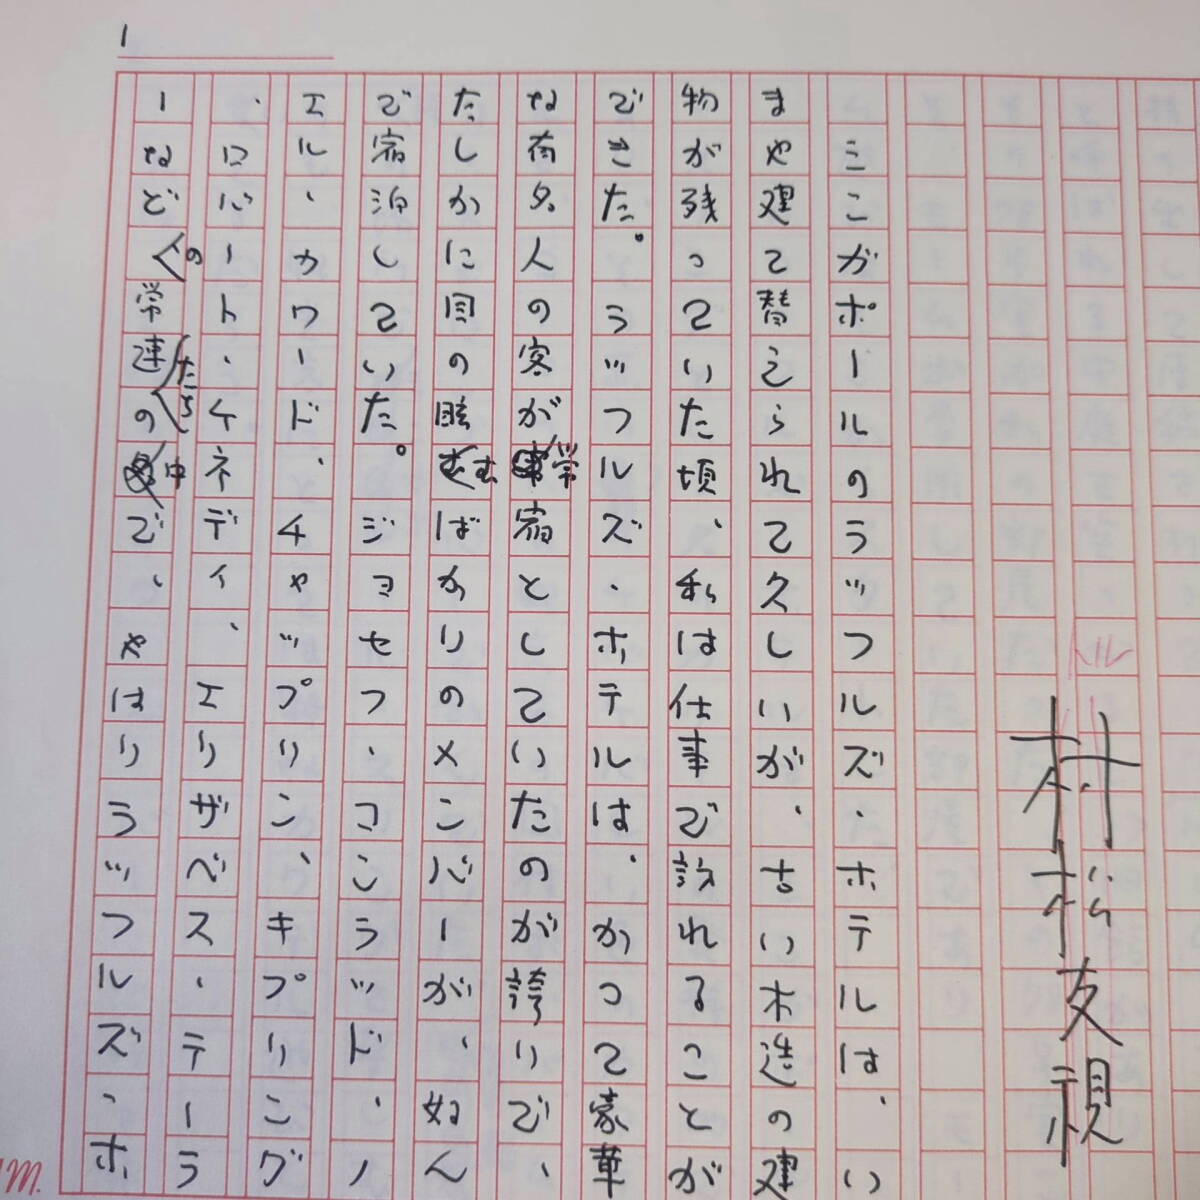 1
村松友視
シンガポールのラッフルズ・ホテルは、い
まや建て替えられて久しいが、古い木造の建
物が残っていた頃、私は仕事で訪れることが
できた。ラッフルズ・ホテルは、かつて豪華
な有名人の客が常宿としていたのが誇りで、
たしかに目の眩むばかりのメンバーが、好ん
で宿泊していた。ジョセフ・コンラッド、ノ
エル・カワード、チャップリン、キプリング
、ロバート・ケネディ、エリザベス・テーラ
ーなどの常連たちの中で、やはりラッフルズ・ホ